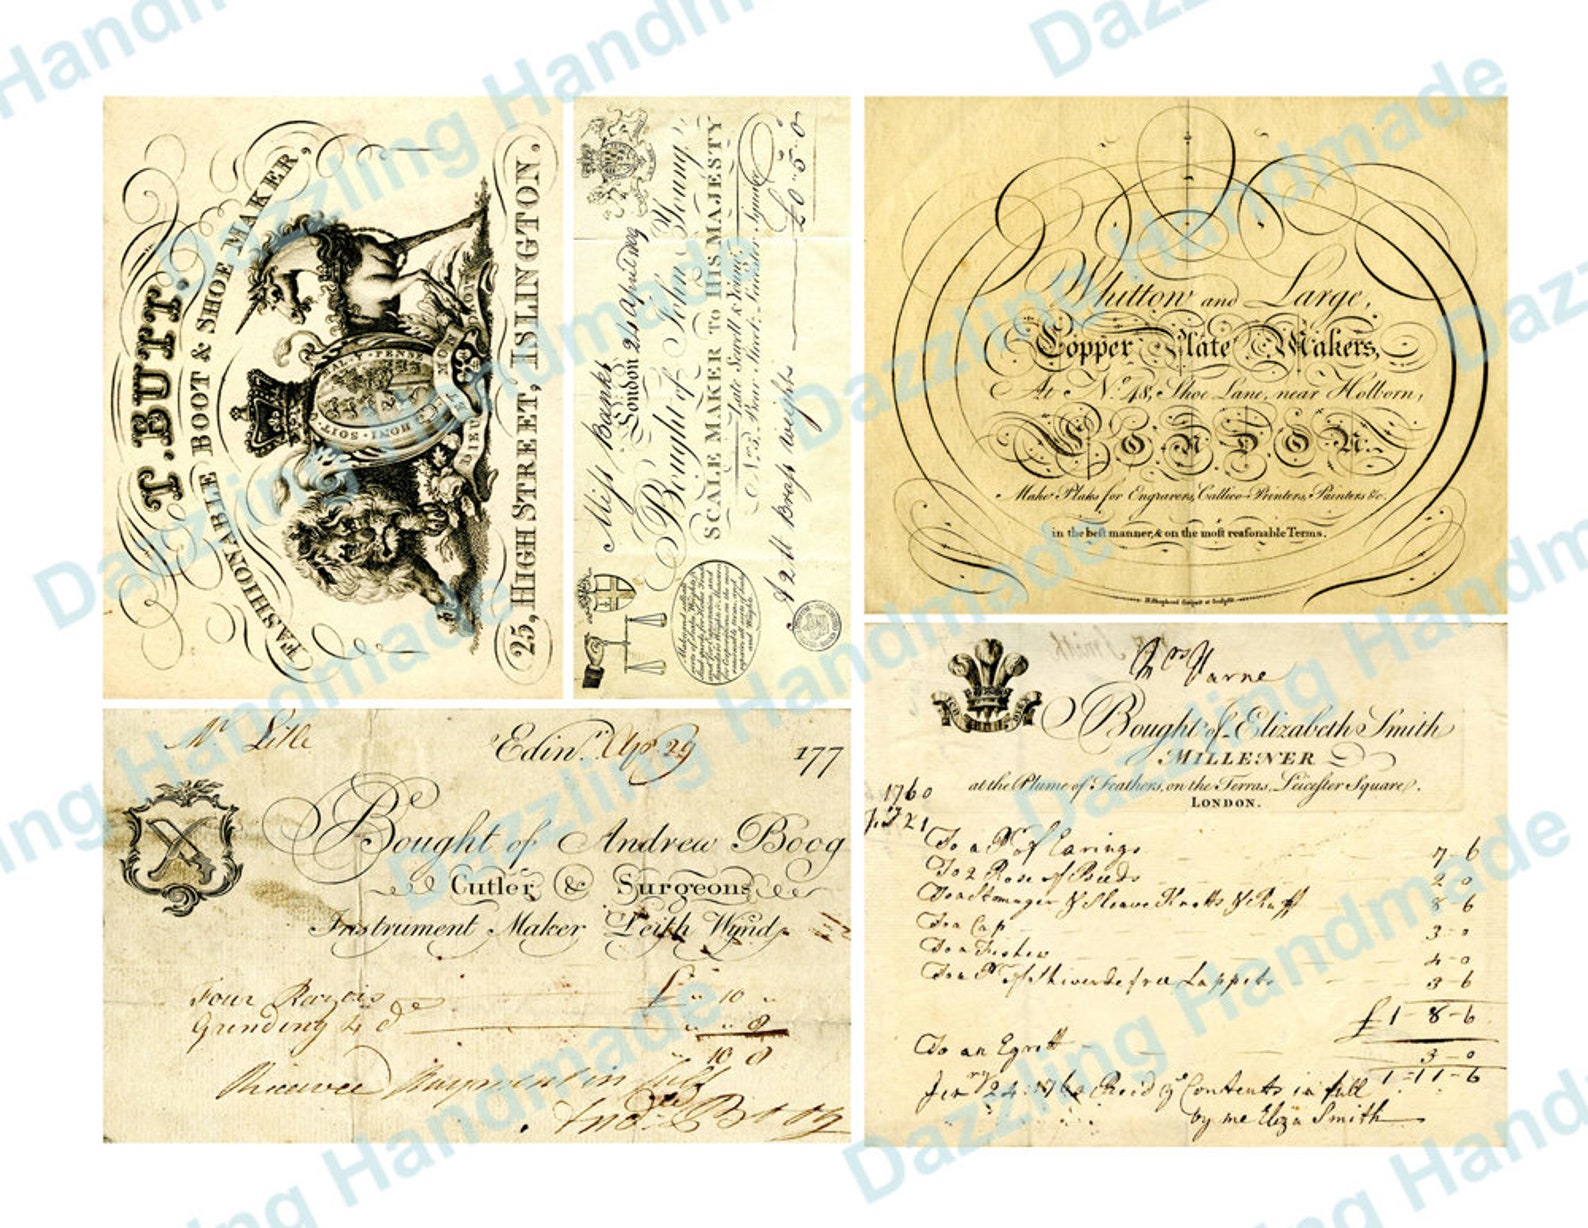 T. BUTT.
FASHIONABLE BOOT & SHOE MAKER,
DIEU ET MON DROIT
HONI · SOIT · QUI · MAL · Y · PENSE
25, HIGH STREET, ISLINGTON.
Miſs Banks
London 24 April 1809
Bought of John Young,
SCALE MAKER TO HIS MAJESTY
Late Sewell & Young
No. 5, Bear Street, Leicester Square
£0 - 5 - 0
Whittow and Large,
Copper Plate Makers,
At No. 48, Shoe Lane, near Holborn,
LONDON.
Make Plates for Engravers, Callico-Printers, Painters &c.
in the beſt manner, & on the moſt reaſonable Terms.
Mr. Litle
Edinr. Apr. 29 177
Bought of Andrew Boog
Cutler & Surgeons
Instrument Maker Leith Wynd
Four Razors £ " 10 "
Grinding 4 do " " 8
" 10 8
Received Payment in full
Andw. Boog
Mrs Varne
Bought of Elizabeth Smith
MILLENER
at the Plume of Feathers, on the Terras, Leiceſter Square,
LONDON.
1760
Jan 21
To a Pr of Earings 7 - 6
To 2 Rose of Beeds 2 - 0
Sleave Knotts & Ruff 8 - 6
To a Cap 3 - 0
4 - 0
Lappets 3 - 6
£1 - 8 - 6
To an Egrett 3 - 0
1 - 11 - 6
Jenry 24: 1760 Recd ye Contents in full
by me Eliza Smith
Dazzling Handmade